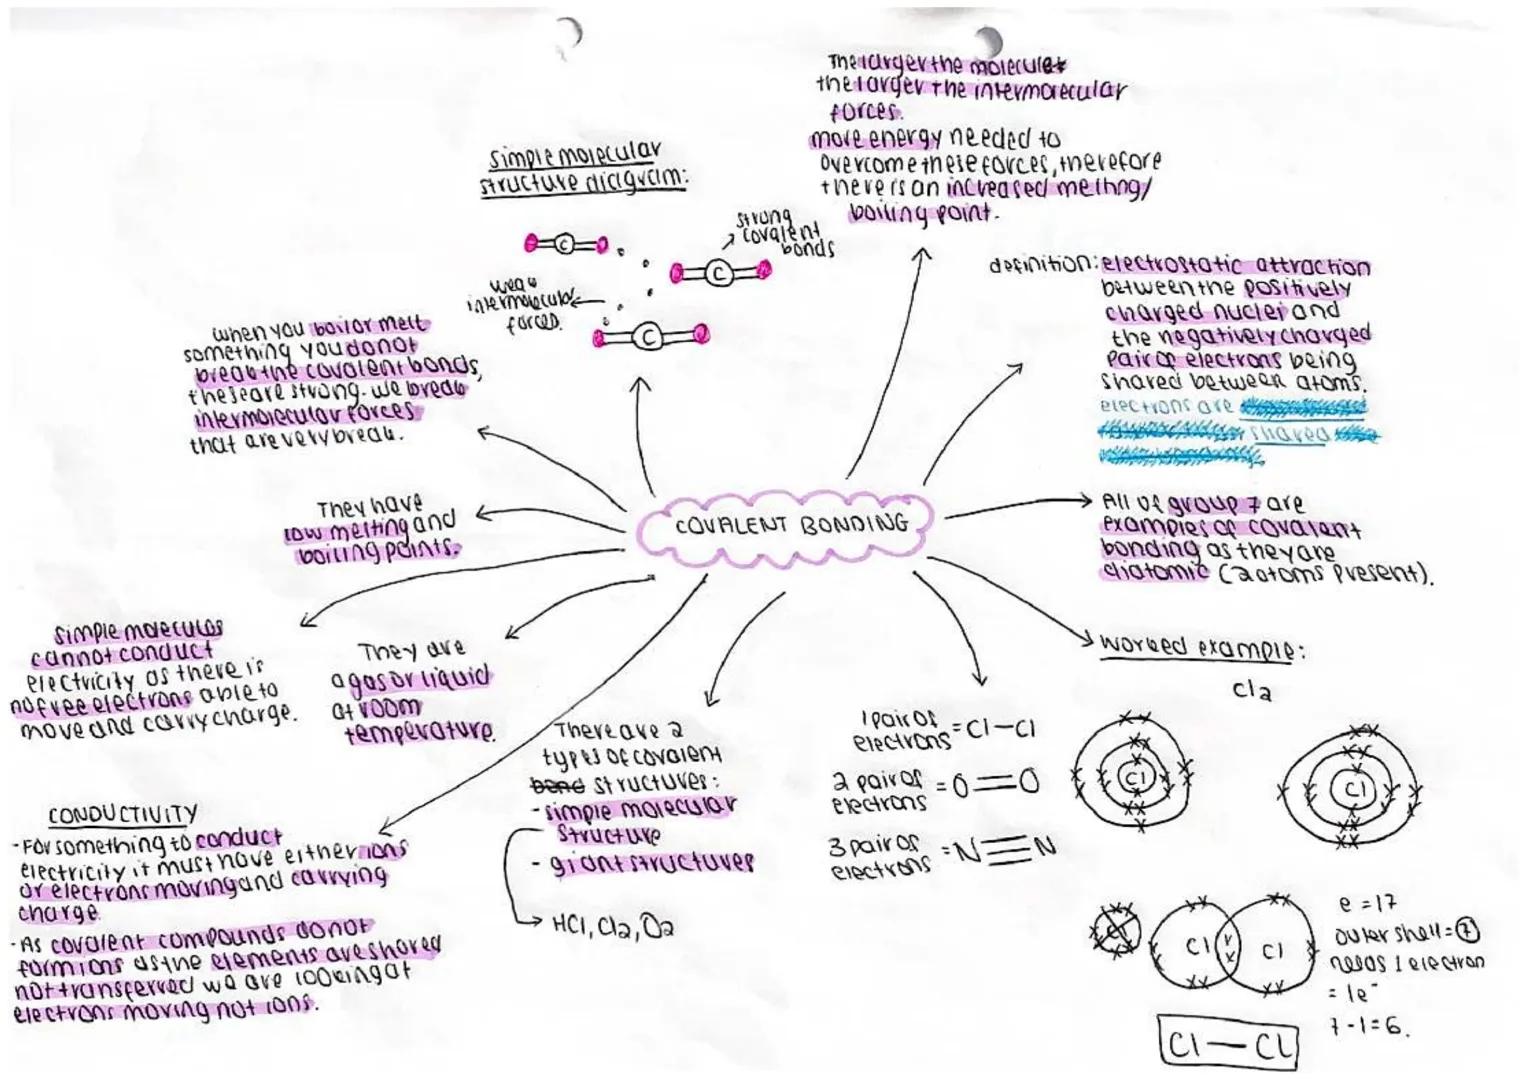 The larger the molecule
the larger the intermolecular
forces.
more energy needed to
overcome these forces, therefore
there is an increased melting/
boiling point.
simple molecular
structure diagram:
C
C
C
strong
covalent
bonds
weak
intermolecular
forces.
definition: electrostatic attraction
between the positively
charged nuclei and
the negatively charged
pair of electrons being
shared between atoms.
electrons are
shared
when you boil or melt
something you do not
break the covalent bonds,
these are strong. we break
intermolecular forces
that are very break.
They have
low melting and
boiling points.
COVALENT BONDING
All of group 7 are
examples of covalent
bonding as they are
diatomic (2 atoms present).
simple molecules
cannot conduct
electricity as there is
no free electrons able to
move and carry charge.
They are
a gas or liquid
at room
temperature.
There are 2
types of covalent
bond structures:
- simple molecular
structure
- giant structures
HCl, Cl2, O2
1 pair of
electrons = Cl—Cl
2 pair of
electrons = O=O
3 pair of
electrons = N≡N
Worked example:
Cl2
Cl
Cl
CONDUCTIVITY
- For something to conduct
electricity it must have either ions
or electrons moving and carrying
charge.
- As covalent compounds do not
form ions as the elements are shared
not transferred we are looking at
electrons moving not ions.
Cl
Cl
e = 17
outer shell = 7
needs 1 electron
= 1e⁻
7 - 1 = 6.
Cl — Cl